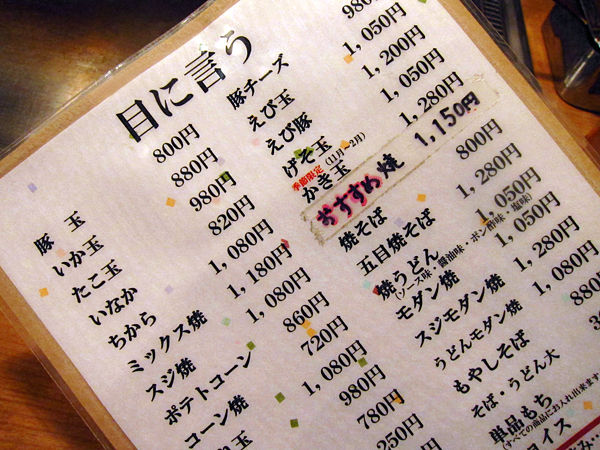 目に言う
豚 玉 800円
いか玉 880円
たこ玉 980円
いなか 820円
ちから 1,080円
ミックス焼 1,180円
スジ焼 1,080円
ポテトコーン 860円
コーン焼 720円
玉 1,080円
980円
780円
250円
豚チーズ 980
えび玉 1,050円
えび豚 1,200円
げそ玉 1,050円
季節限定(11月~2月)
かき玉 1,280円
おすすめ焼 1,150円
焼そば 800円
五目焼そば 1,280円
焼うどん 1,050円
(ソース味・醤油味・ポン酢味・塩味)
モダン焼 1,050円
スジモダン焼 1,280円
うどんモダン焼 1,080円
もやしそば 880
そば・うどん大
単品もち
(すべての商品にお入れ出来ます
イス